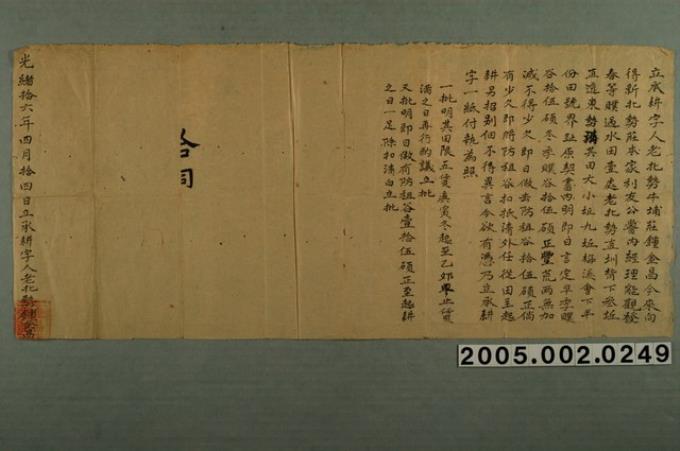 立承耕字人老北勢牛埔莊鍾金昌今來向
得新北勢莊本家利友公嘗內經理寵觀發
春等贌過水田壹處老北勢直圳背下坵址
直透東勢其田大小坵九坵樹溪會下半
份田號界址原契書內明即日言定早季贌
谷拾伍碩冬季贌谷拾伍碩正豐荒兩無加
減不得少欠即日做有防租谷拾伍碩正倘
有少欠即將防租谷扣抵清外任從田主起
耕另招別佃不得異言今欲有憑乃立承耕
字一紙付執為照
一批明其田限五年庚寅冬起至乙未早止任
滿之日再行酌議立批
又批明即日做有防租谷壹拾伍碩正至起耕
之日一足除扣清白立批
合同
光緒拾六年四月拾四日立承耕字人老北勢鍾金昌
2005.002.0249